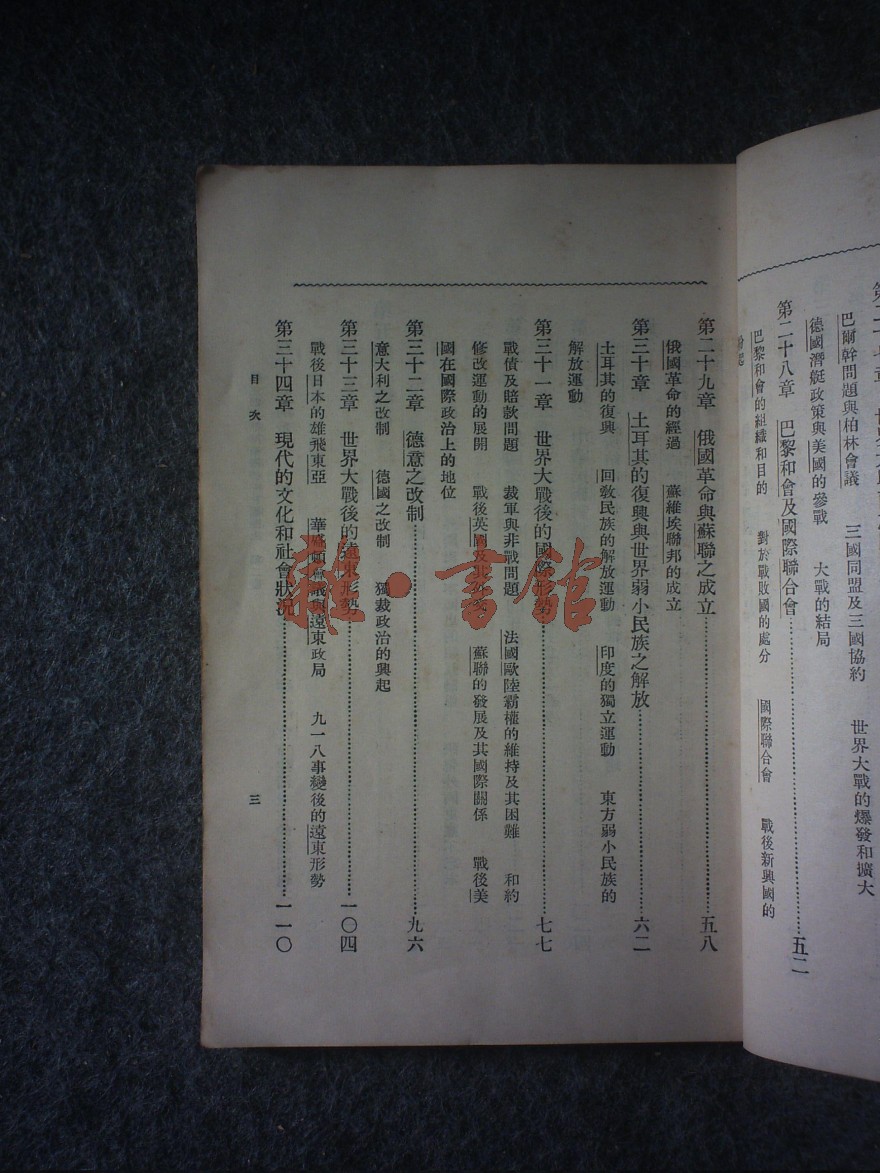 巴爾幹問題與柏林會議　三國同盟及三國協約　世界大戰的爆發和擴大
德國潛艇政策與美國的參戰　大戰的結局
第二十八章　巴黎和會及國際聯合會……五二
巴黎和會的組織和目的　對於戰敗國的處分　國際聯合會　戰後新興國的
第二十九章　俄國革命與蘇聯之成立……五八
俄國革命的經過　蘇維埃聯邦的成立
第三十章　土耳其的復興與世界弱小民族之解放……六二
土耳其的復興　回教民族的解放運動　印度的獨立運動　東方弱小民族的
解放運動
第三十一章　世界大戰後的國際形勢……七七
戰債及賠款問題　裁軍與非戰問題　法國歐陸霸權的維持及其困難　和約
修改運動的展開　戰後英國及其外交　蘇聯的發展及其國際關係　戰後美
國在國際政治上的地位
第三十二章　德意之改制……九六
意大利之改制　德國之改制　獨裁政治的興起
第三十三章　世界大戰後的遠東形勢……一〇四
戰後日本的雄飛東亞　華盛頓會議與遠東政局　九一八事變後的遠東形勢
第三十四章　現代的文化和社會狀況……一一〇
目次
三
書館